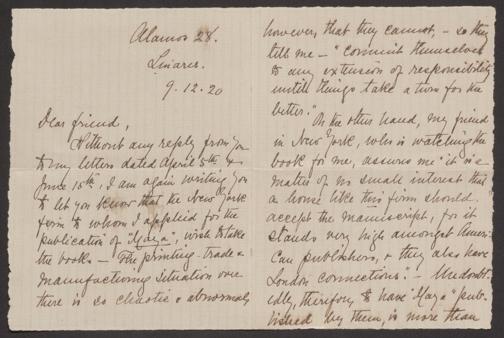 Alamos 28.
Linares.
9.12.20
Dear friend,
Without any reply from you
to my letters dated April 5th, &
June 15th, I am again writing you
to let you know that the New York
firm to whom I applied for the
publication of "Yaya", wish to take
the books – The printing trade &
manufactoring situation over
there is so chaotic & abnormal,
however, that they cannot, – so they
tell me – "commit themselves
to any extension of responsibility
untill things take a turn for the
better." On the other hand, my friend
in New York, who is watching the
book for me, assures me "it is a
matter of no small interest that
a house like this firm should
accept the manuscript, for it
stands very high amongst Ameri-
can publishers, & they also have
London connections." – Undoubt-
edly, therefore, to have "Yaya" pub-
lished by them, is more than